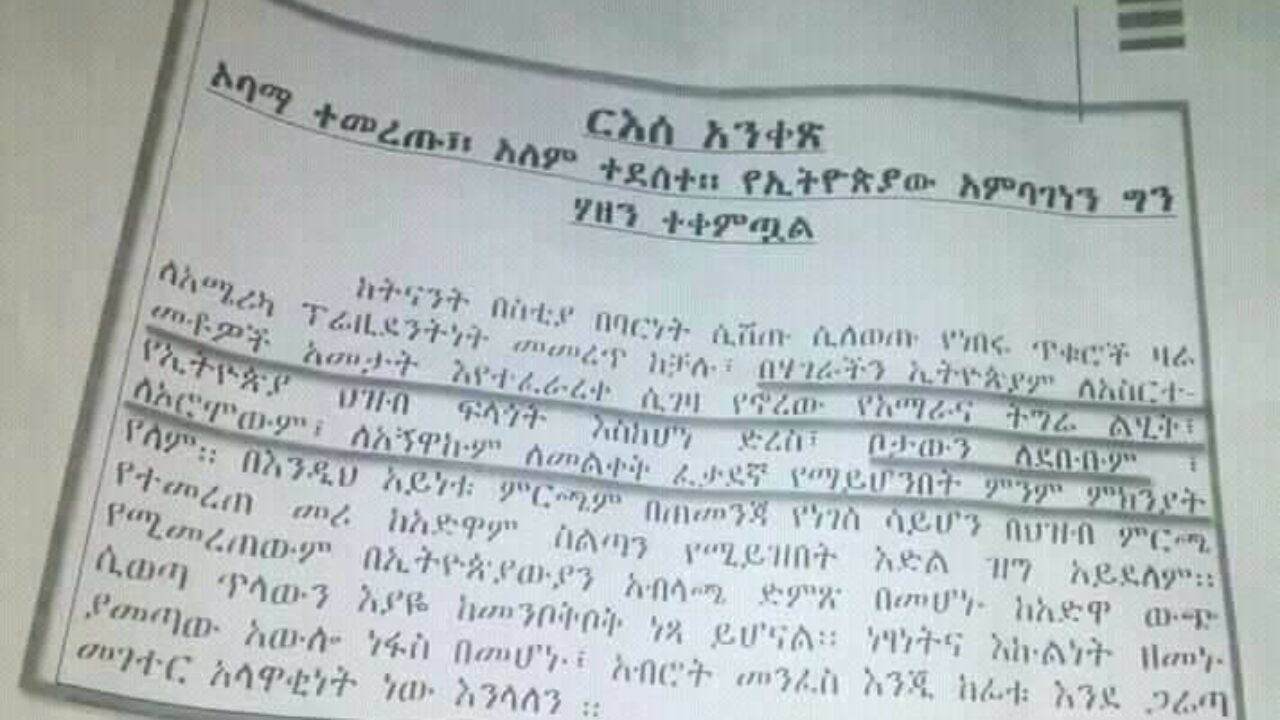 ርእሰ አንቀጽ
ኦባማ ተመረጡ፤፤ አለም ተደሰተ። የኢትዮጵያው አምባገነን ግን
ሃዘን ተቀምጧል
ከትናንት በስቲያ በባርነት ሲሸጡ ሲለወጡ የነበሩ ጥቁሮች ዛሬ
ለአሜሪካ ፕሬዚደንትነት መመረጥ ከቻሉ፤ በሃገራችን ኢትዮጵያም ለአስርተ-
መቶዎች አመታት እየተፈራረቀ ሲገዛ የኖረው የአማራና ትግሬ ልሂቅ፤
የኢትዮጵያ ህዝብ ፍላጎት እስከሆነ ድረስ፤ ቦታውን ለደቡቡም ፤
ለኦሮሞውም፤ ለአኝዋኩም ለመልቀቅ ፈቃደኛ የማይሆንበት ምንም ምክንያት
የለም። በእንዲህ አይነቱ ምርጫም በጠመንጃ የነገሰ ሳይሆን በህዝብ ምርጫ
የተመረጠ መሪ ከአድዋም ስልጣን የሚይዝበት እድል ዝግ አይደለም።
የሚመረጠውም በኢትዮጵያውያን አብላጫ ድምጽ በመሆኑ ከአድዋ ውጭ
ሲወጣ ጥላውን እያዬ ከመንበቅበቅ ነጻ ይሆናል። ነፃነትና እኩልነት ዘመኑ
ያመጣው አውሎ ነፋስ በመሆኑ፤ አብሮት መንፈስ እንጂ ከፊቱ እንደ ጋሬጣ
መገተር አላዋቂነት ነው እንላለን ።